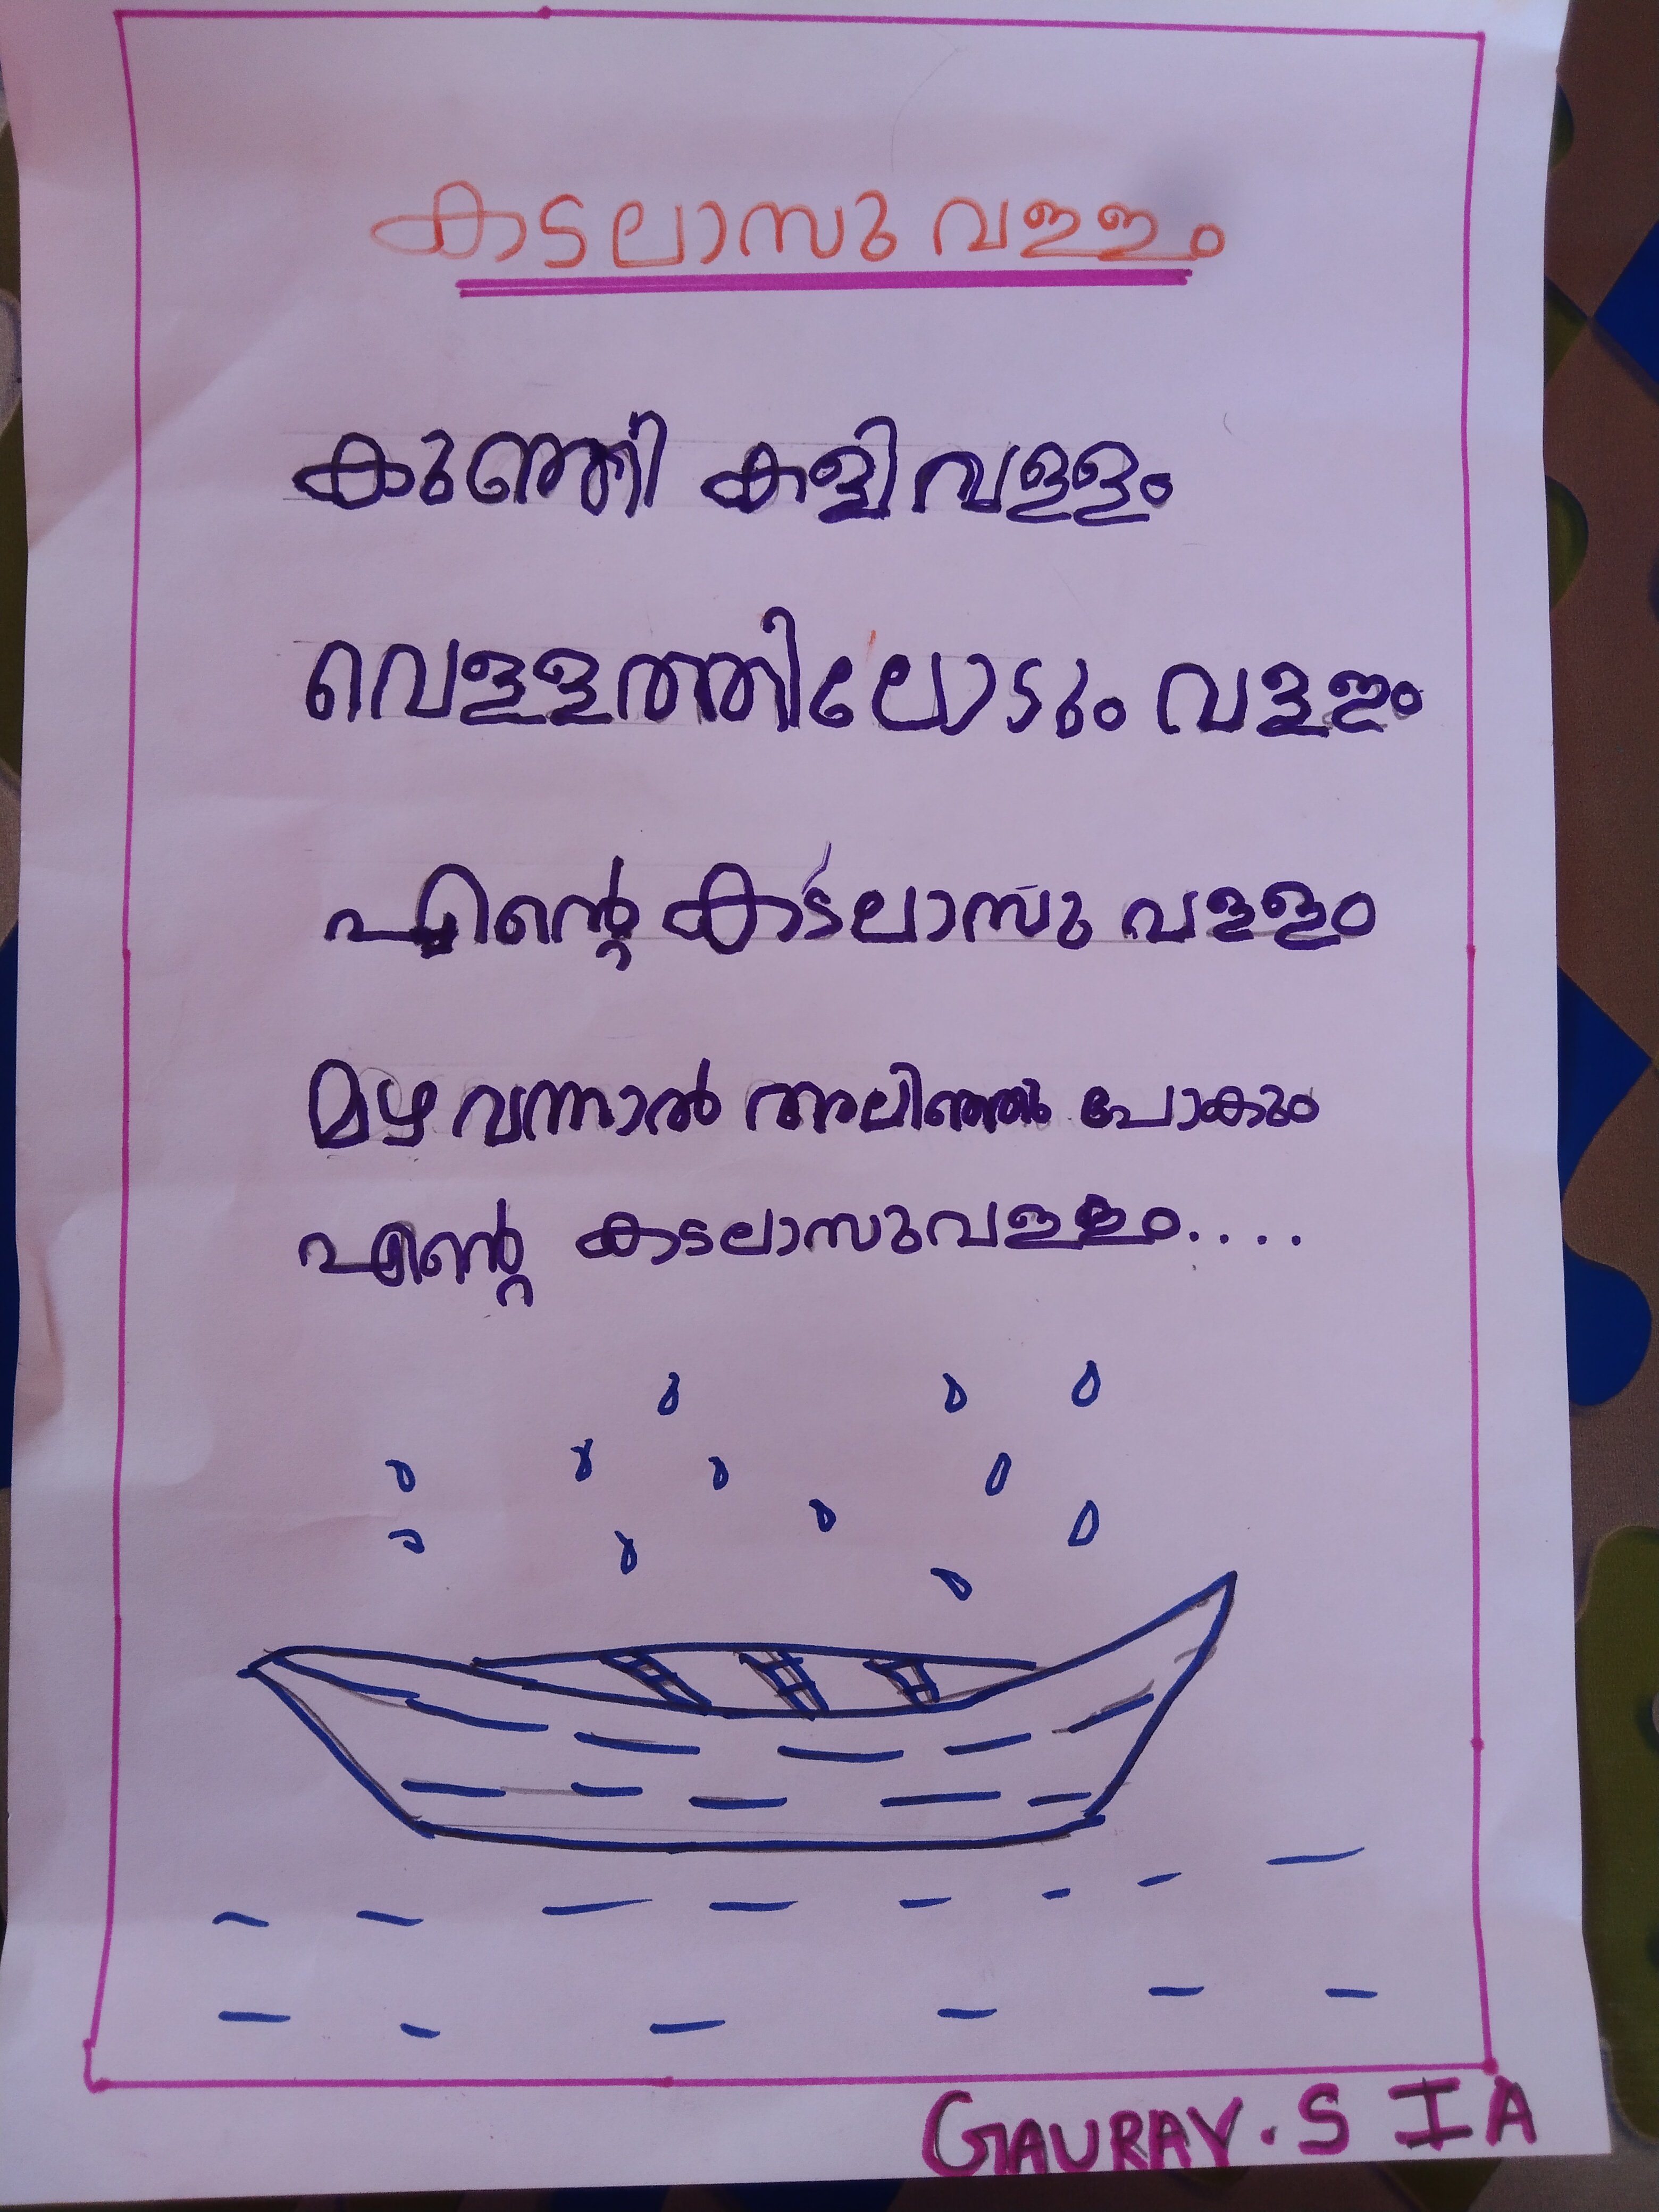 കടലാസു വള്ളം
കുഞ്ഞി കളിവള്ളം
വെള്ളത്തിലോടും വള്ളം
എന്റെ കടലാസു വള്ളം
മഴ വന്നാൽ അലിഞ്ഞു പോകും
എന്റെ കടലാസുവള്ളം....
GAURAV.S I A